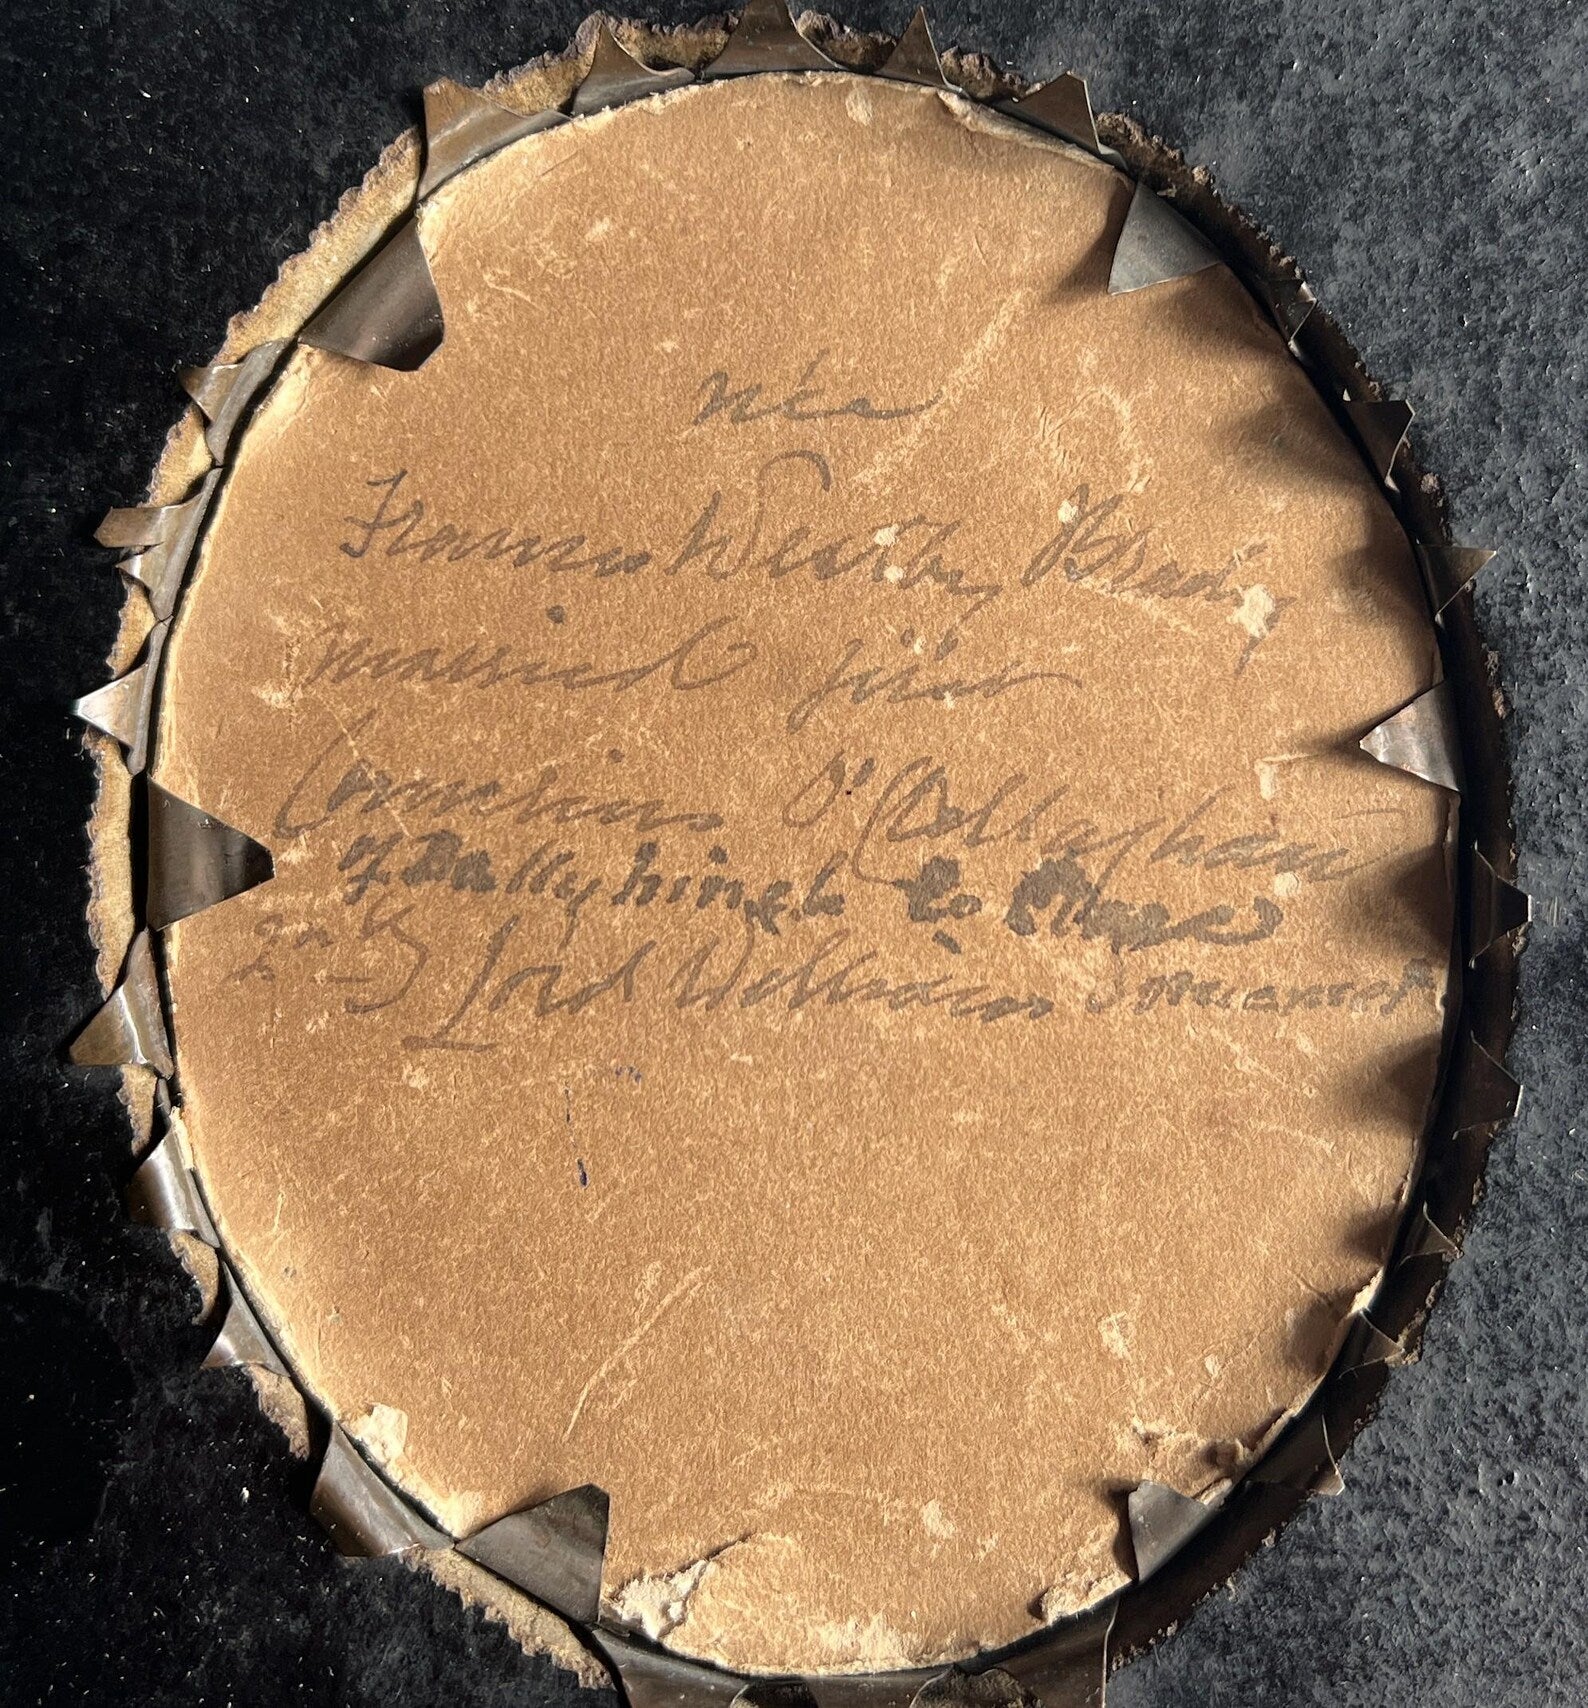 née
Frances Westby Brady
married first
Cornelius O'Callaghan
of Ballyhinch Co Clare
2
Lord William